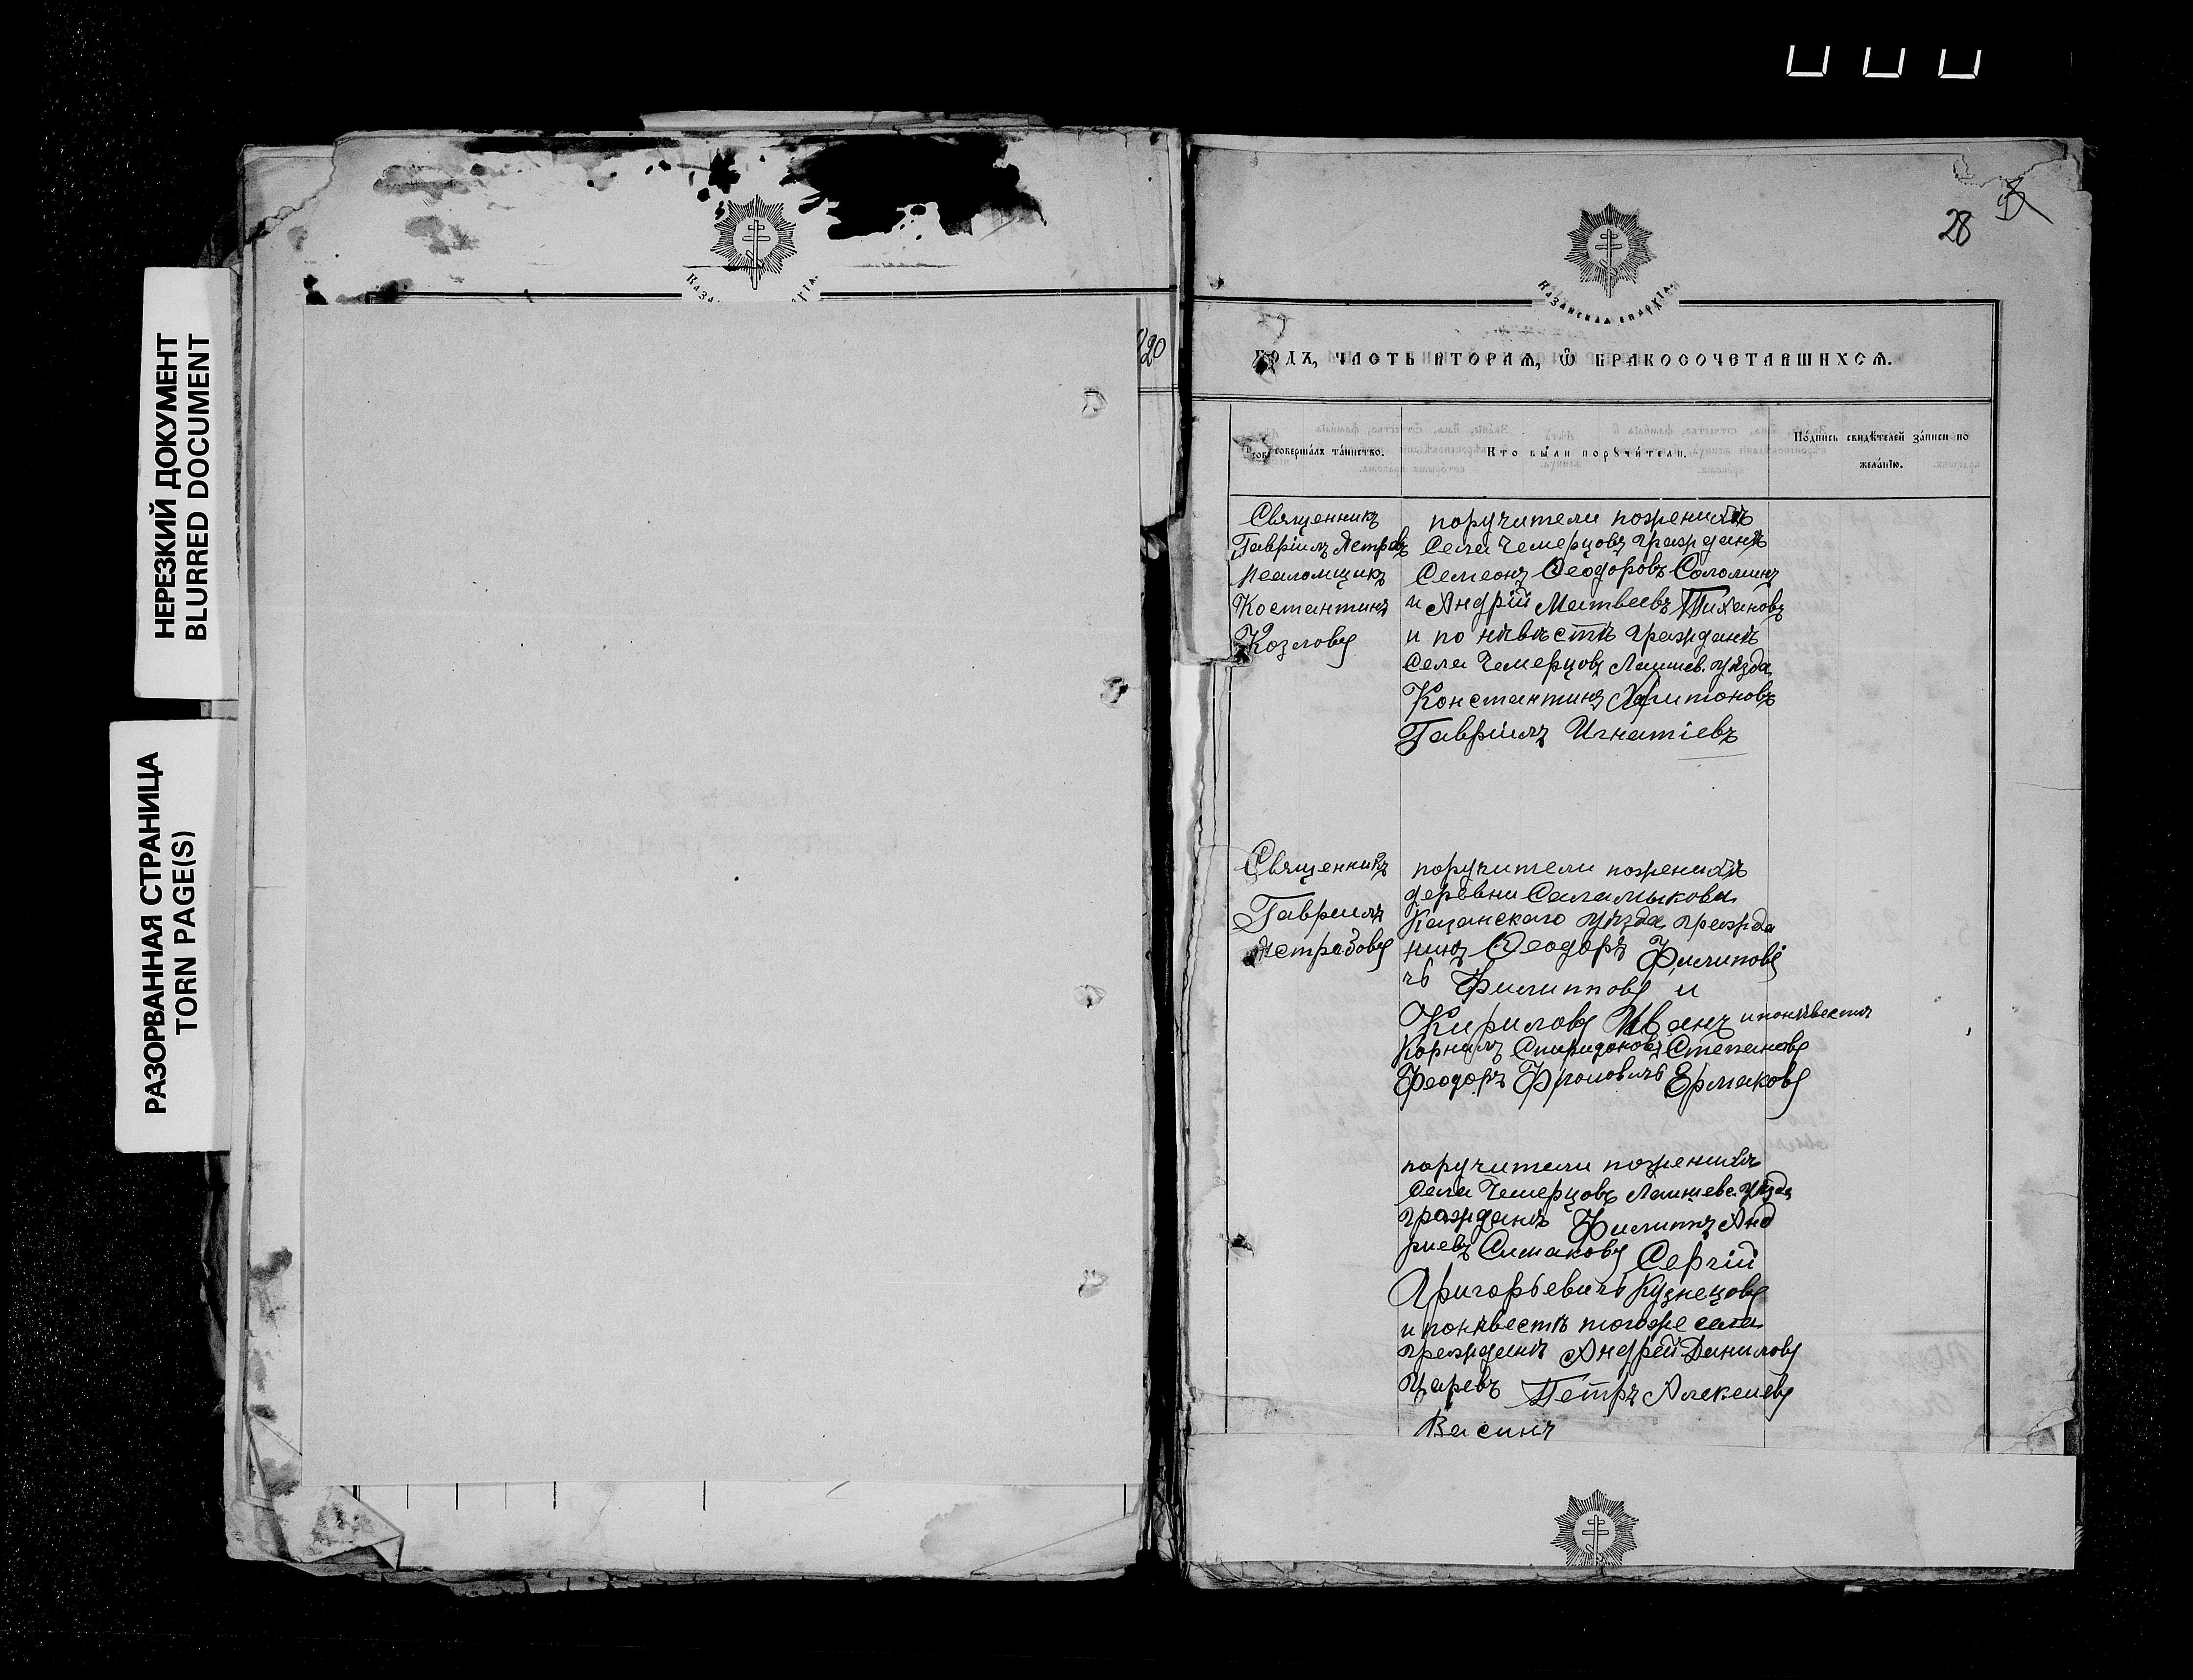 НЕРЕЗКИЙ ДОКУМЕНТ
BLURRED DOCUMENT
РАЗОРВАННАЯ СТРАНИЦА
TORN PAGE(S)
20
28
КАЗАНСКАѦ ЕПАРХІѦ
ГОДЪ, ЧАСТЬ ВТОРАѦ, Ѡ БРАКОСОЧЕТАВШИХСѦ.
совершалъ таинство.
Кто были порꙋчители.
Подпись свидѣтелей записи по
желанїю.
Священникъ
Гавріилъ Ястребовъ
Псаломщикъ
Костантинъ
Козловъ
поручители пожениху
Села Чемерцовъ граждане
Семеонъ Ѳеодоровъ Соломинъ
и Андрій Матвеевъ Тихановъ
и по нѣвѣстѣ гражданѣ
Села Чемерцовъ Лаишев. уѣзда
Константинъ Харитоновъ
Гавріилъ Игнатіевъ
Священникъ
Гавриилъ
Ястребовъ
поручители пожениху
деревни Саламыкова
Казанскаго уѣзда гражда
нинъ Ѳеодоръ Филипови
чъ Филипповъ и
Кириловъ Иванъ и понѣвестѣ
Корнилъ Спиридоновъ Степановъ
Феодоръ Фроловичъ Ермаковъ
поручители пожениху
Села Чемерцовъ Лаишев. уѣзда
гражданѣ Филиппъ Анд
риевъ Симаковъ Сергій
Григорьевичъ Кузнецовъ
и понѣвестѣ тогоже села
гражданѣ Андрей Даниловъ
Царевъ Петръ Алексиевъ
Васинъ